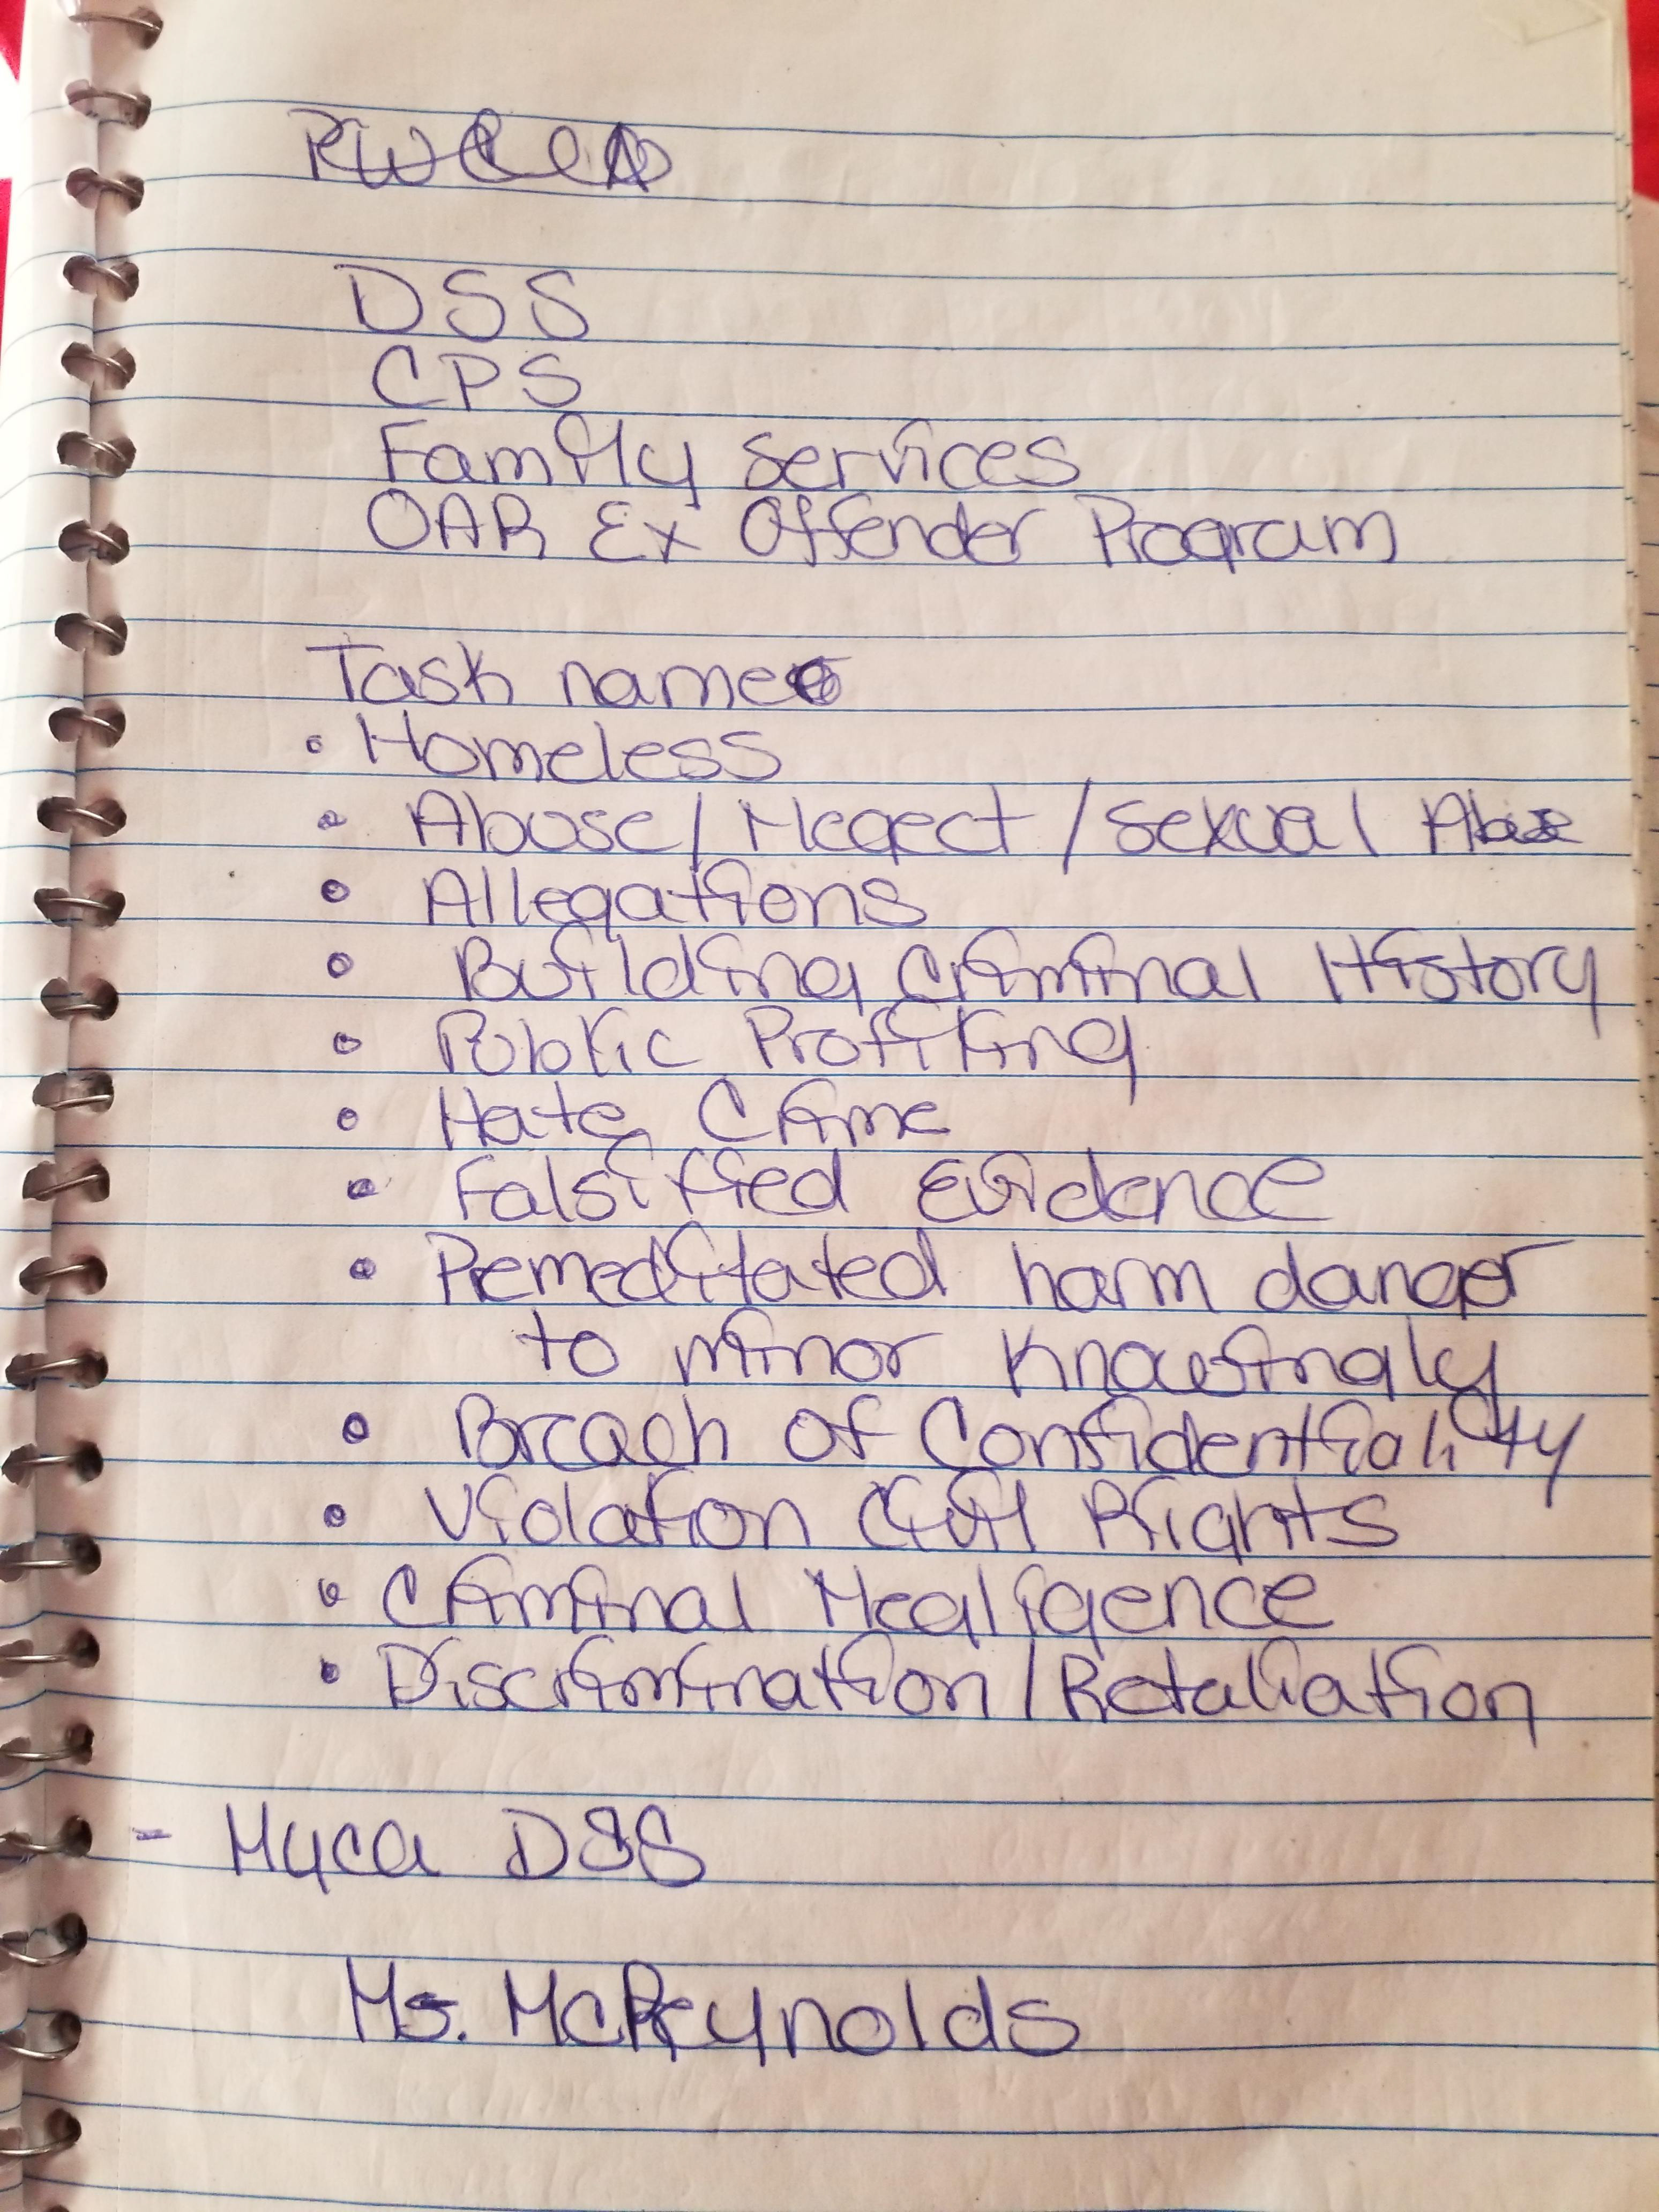 DSS
CPS
Family services
OAR Ex Offender Program
Task name
• Homeless
• Abuse/Negect/Sexual Abuse
• Allegations
• Building Criminal History
• Public Profiling
• Hate Crime
• Falsified Evidence
• Premeditated harm danger
to minor knowingly
• Breach of Confidentiality
• Violation Civil Rights
• Criminal Negligence
• Discrimination/Retaliation
- Myca DSS
Ms. McReynolds